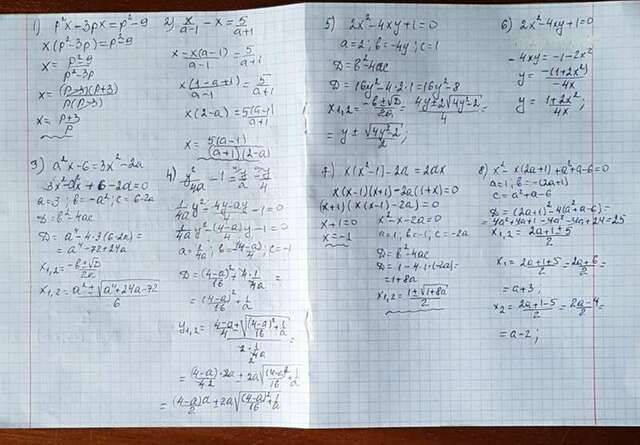 1) p²x-3px=p²-9
x(p²-3p)=p²-9
x=(p²-9)/(p²-3p)
x=(p-3)(p+3)/p(p-3)
x=(p+3)/p
2) x/(a-1) - x = 5/(a+1)
x-x(a-1)/(a-1) = 5/(a+1)
x(1-a+1)/(a-1) = 5/(a+1)
x(2-a) = 5(a-1)/(a+1)
x = 5(a-1)/(a+1)(2-a)
3) a²x-6=3x²-2a
3x²-a²x+6-2a=0
a=3; b=-a²; c=6-2a
D=b²-4ac
D=a⁴-4·3(6-2x)=
=a⁴-72+24a
x1,2=(-b±√D)/2a
x1,2=(a²±√(a⁴+24a-72))/6
4) y²/4a - 1 =
1/4a y² - (4y-ay)/4 - 1=0
1/4a y² - (4-a)/4 y - 1=0
a=1/4a; b=-(4-a)/4; c=-1
D=(4-a)²/16 + 4·1/4a =
=(4-a)²/16 + 1/a
y1,2=
=(4-a)·2a/4 ± 2a√((4-a)²/16+1/a)
=(4-a)a/2 ± 2a√((4-a)²/16+1/a)
5) 2x²-4xy+1=0
a=2; b=-4y; c=1
D=b²-4ac
D=16y²-4·2·1=16y²-8
x1,2=(-b±√D)/2a=(4y±2√(4y²-2))/4=
=y±√(4y²-2)/2;
6) 2x²-4xy+1=0
-4xy=-1-2x²
y=-(1+2x²)/-4x
y=(1+2x²)/4x;
7) x(x²-1)-2a=2ax
x(x-1)(x+1)-2a(1+x)=0
(x+1)(x(x-1)-2a)=0
x+1=0 x²-x-2a=0
x=-1 a=1; b=-1; c=-2a
D=b²-4ac
D=1-4·1·(-2a)=
=1+8a
x1,2=(1±√(1+8a))/2
8) x²-x(2a+1)+a²+a-6=0
a=1, b=-(2a+1)
c=a²+a-6
D=(2a+1)²-4(a²+a-6)=
=4a²+4a+1-4a²-4a+24=25
x1,2=(2a+1±5)/2
x1=(2a+1+5)/2=(2a+6)/2=
=a+3;
x2=(2a+1-5)/2=(2a-4)/2=
=a-2;